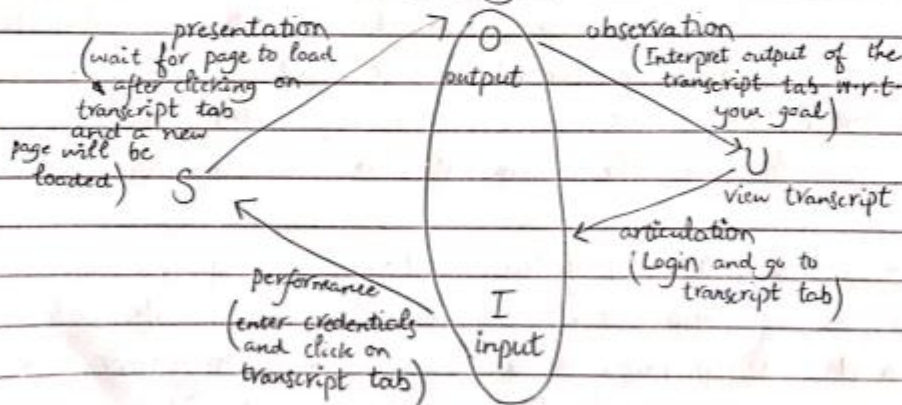 presentation
(wait for page to load
after clicking on
transcript tab
and a new
page will be
loaded)
S
O
output
observation
(Interpret output of the
transcript tab w.r.t.
your goal)
U
view transcript
articulation
(Login and go to
transcript tab)
performance
(enter credentials
and click on
transcript tab)
I
input